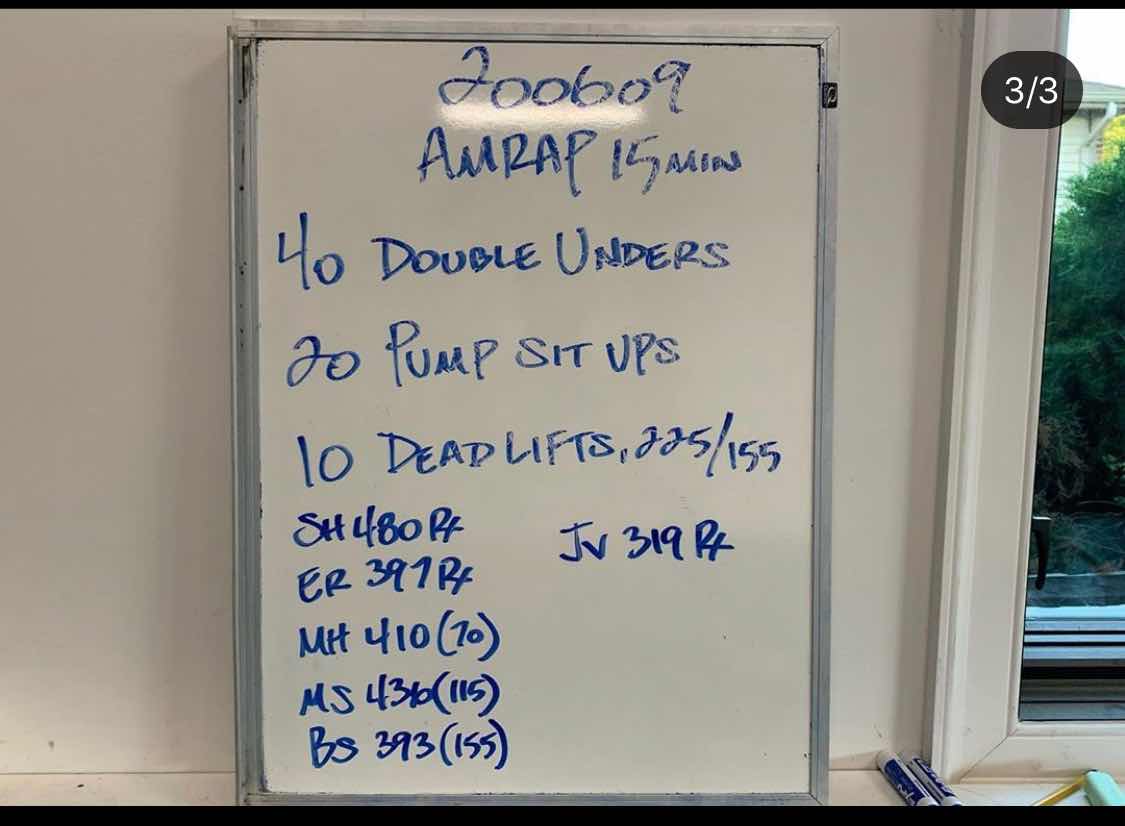 3/3
200609
AMRAP 15 MIN
40 DOUBLE UNDERS
20 PUMP SIT UPS
10 DEADLIFTS, 225/155
SH 480 Rx
ER 397 Rx
MH 410 (70)
MS 436 (115)
BS 393 (155)
JV 319 Rx